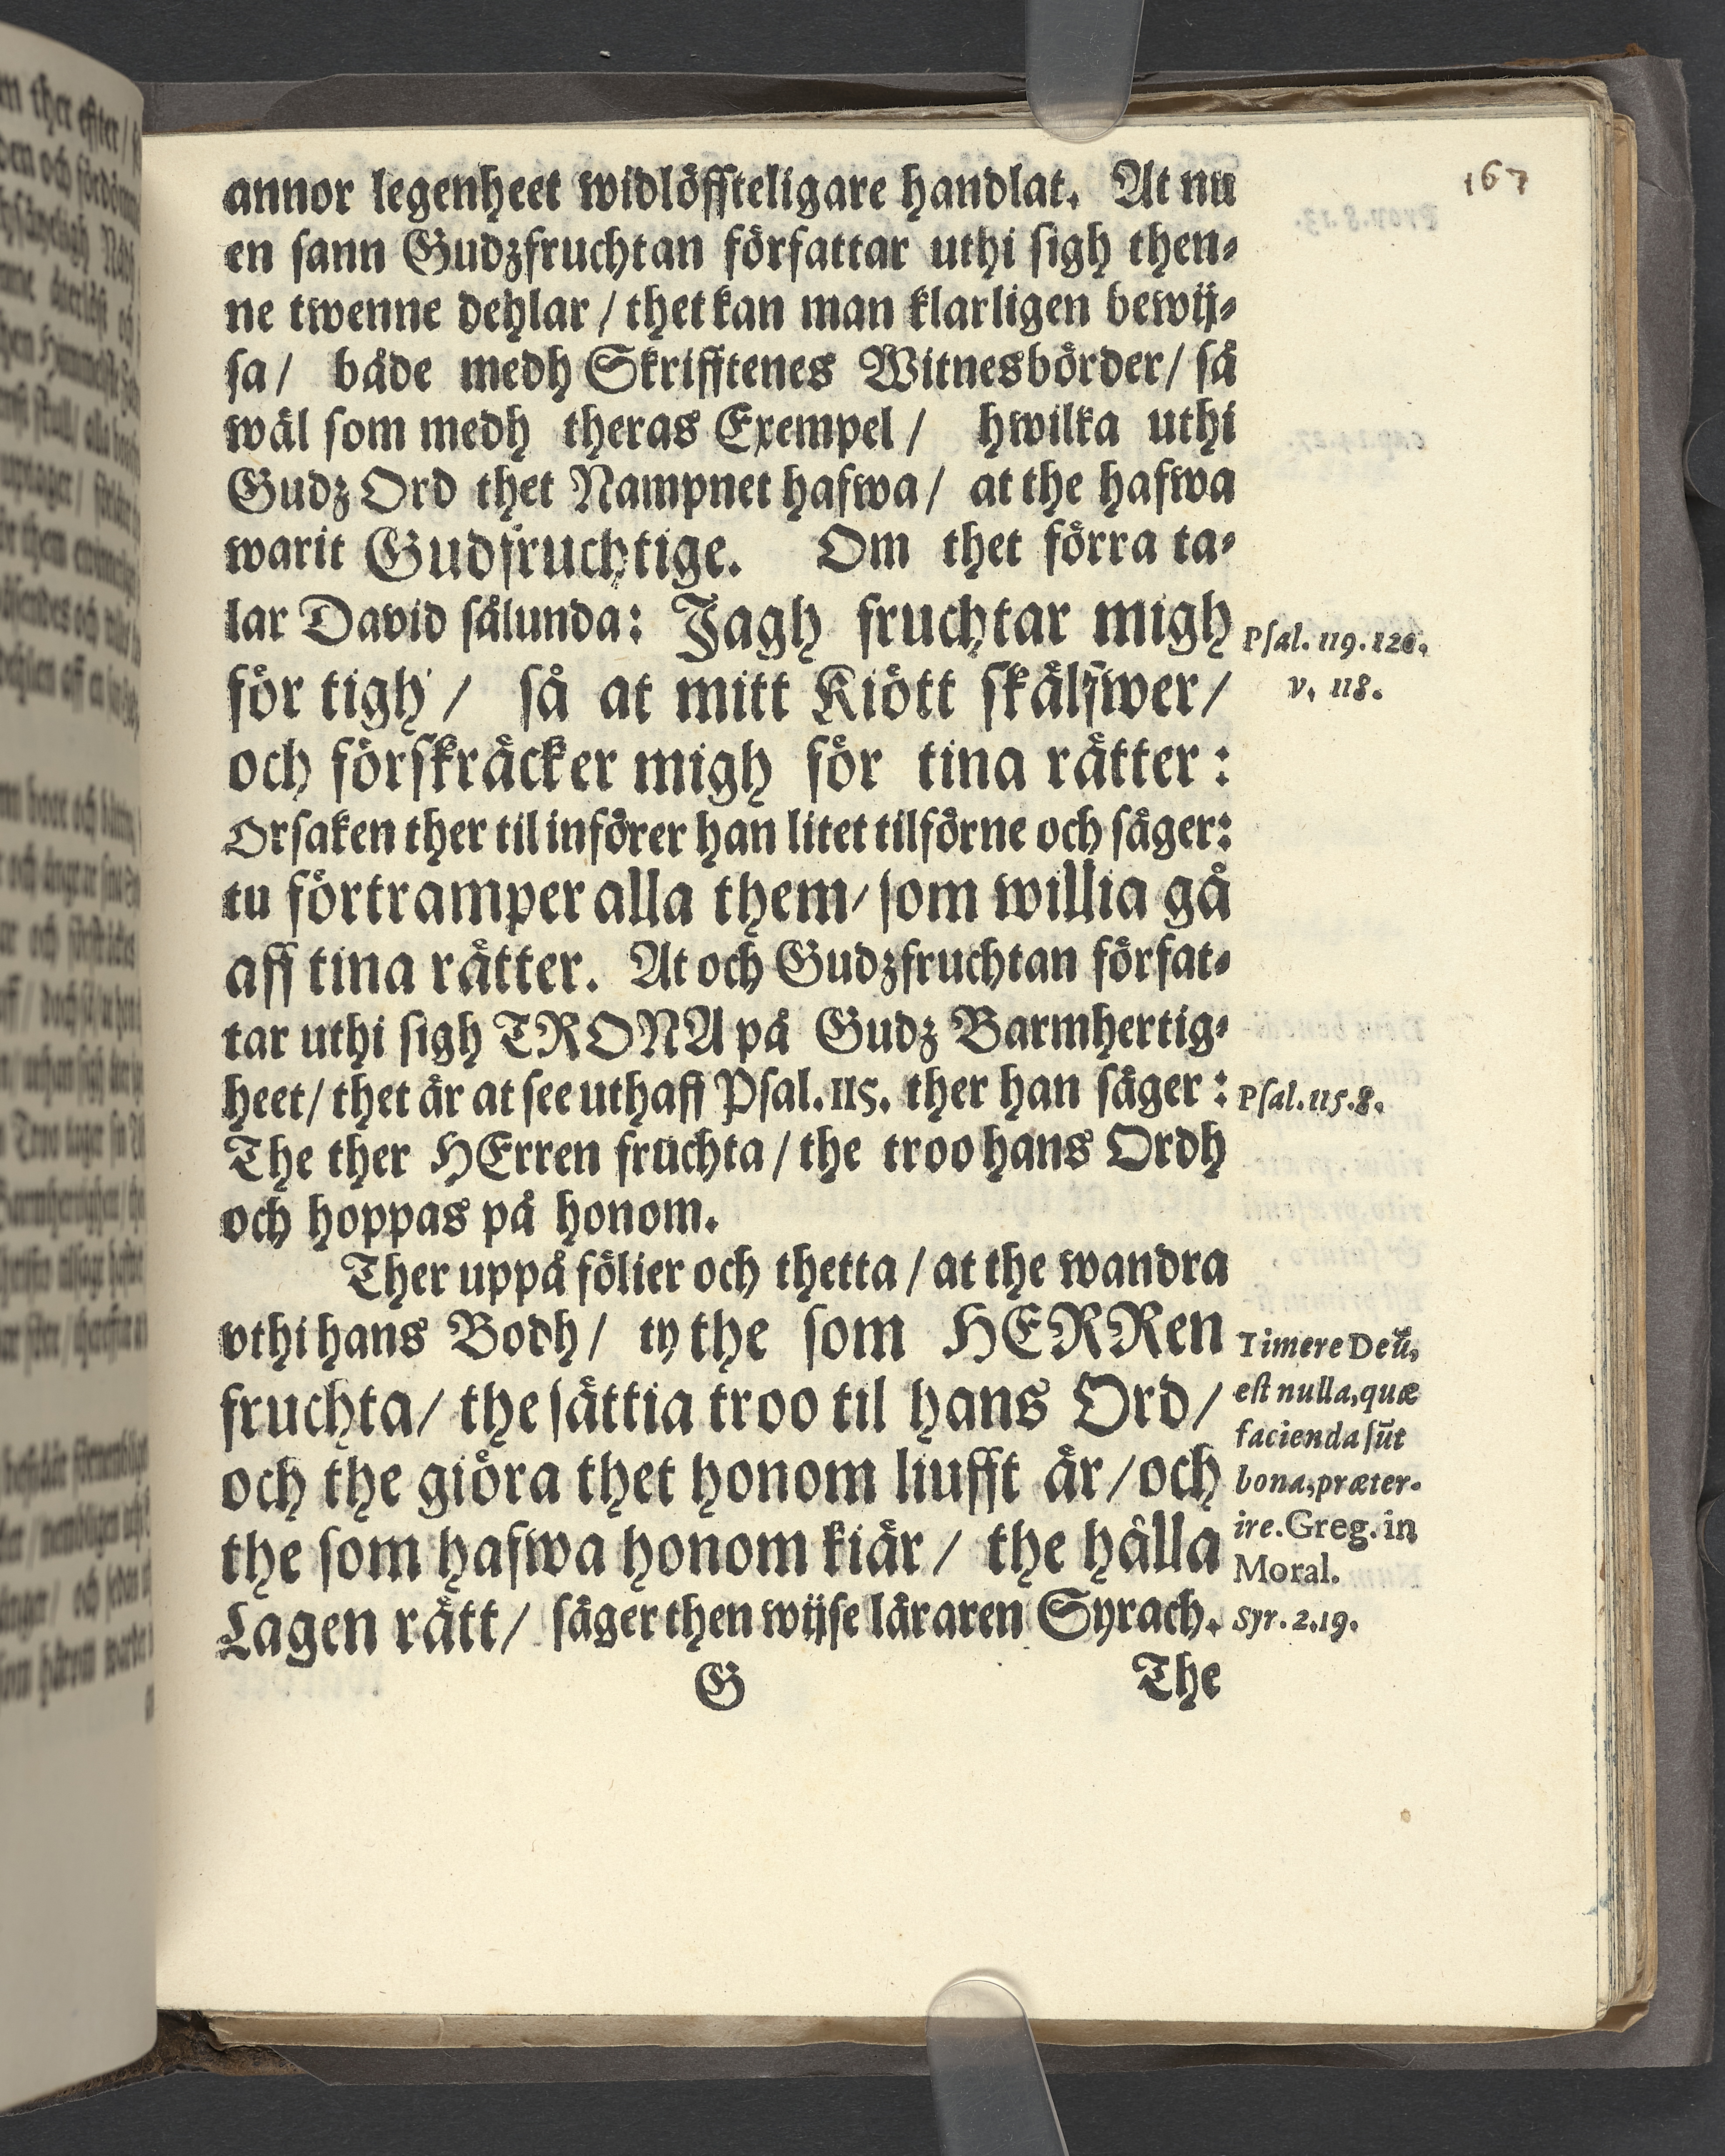 167
annor legenheet widlöffteligare handlat. At nu
en sann Gudzfruchtan författar uthi sigh then-
ne twenne dehlar / thet kan man klarligen bewij-
sa / både medh Skrifftenes Witnesbörder / så
wäl som medh theras Exempel / hwilka uthi
Gudz Ord thet Nampnet hafwa / at the hafwa
warit Gudfruchtige. Om thet förra ta-
lar David sålunda: Jagh fruchtar migh
Psal. 119. 120.
för tigh / så at mitt Kiött skälfwer /
v. 118.
och förskräcker migh för tina rätter :
Orsaken ther til införer han litet tilförne och säger:
tu förtramper alla them / som willia gå
aff tina rätter. At och Gudzfruchtan förfat-
tar uthi sigh TRONA på Gudz Barmhertig-
heet / thet är at see uthaff Psal. 115. ther han säger :
Psal. 115. 8.
The ther HErren fruchta / the troo hans Ordh
och hoppas på honom.
Ther uppå fölier och thetta / at the wandra
vthi hans Bodh / ty the som HERRen
fruchta / the sättia troo til hans Ord /
och the giöra thet honom liufft är / och
the som hafwa honom kiär / the hålla
Lagen rätt / säger then wijse läraren Syrach.
Timere Deũ,
est nulla, quæ
facienda sũt
bona, præter-
ire. Greg. in
Moral.
Syr. 2. 19.
G The